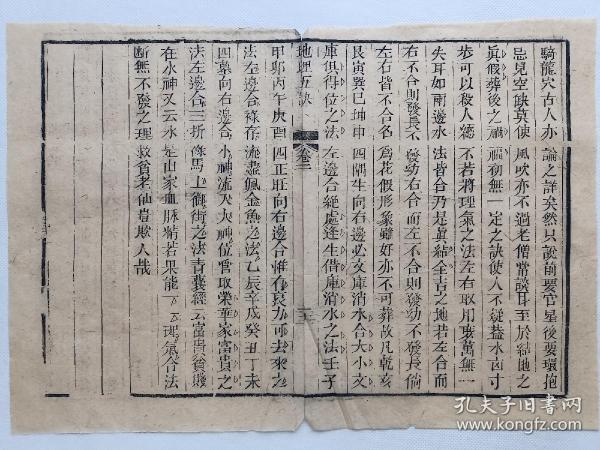 騎龍穴古人亦論之詳矣然只說前要官星後要環抱
忌見空缺莫使風吹亦不過老僧常談耳至於結地之
眞假葬後之禍福初無一定之訣使人不疑蓋水凶寸
步可以殺人總不若將理氣之法左右取用萬無一
失耳如兩邊水法皆合乃是眞結全吉之地若左合而
右不合則發長不發幼右合而左不合則發幼不發長倘
左右皆不合名爲花假形象雖好亦不可葬故凡乾亥
艮寅巽巳坤申四隅生向右邊必文庫消水合大小文
庫俱得位之法左邊合絕處逢生借庫消水之法壬子
地理五訣 卷二
甲卯丙午庚酉四正旺向右邊合惟有衰方可去來之
法左邊合祿存流盡佩金魚之法乙辰辛戌癸丑丁未
四墓向右邊合小神流入大神位管取榮華家富貴之
法左邊合三折祿馬上御街之法青囊經云富貴貧賤
在水神又云水是山家血脉精若果龍眞穴的理氣合法
斷無不發之理救貧老仙豈欺人哉
孔夫子旧书网
www.kongfz.com